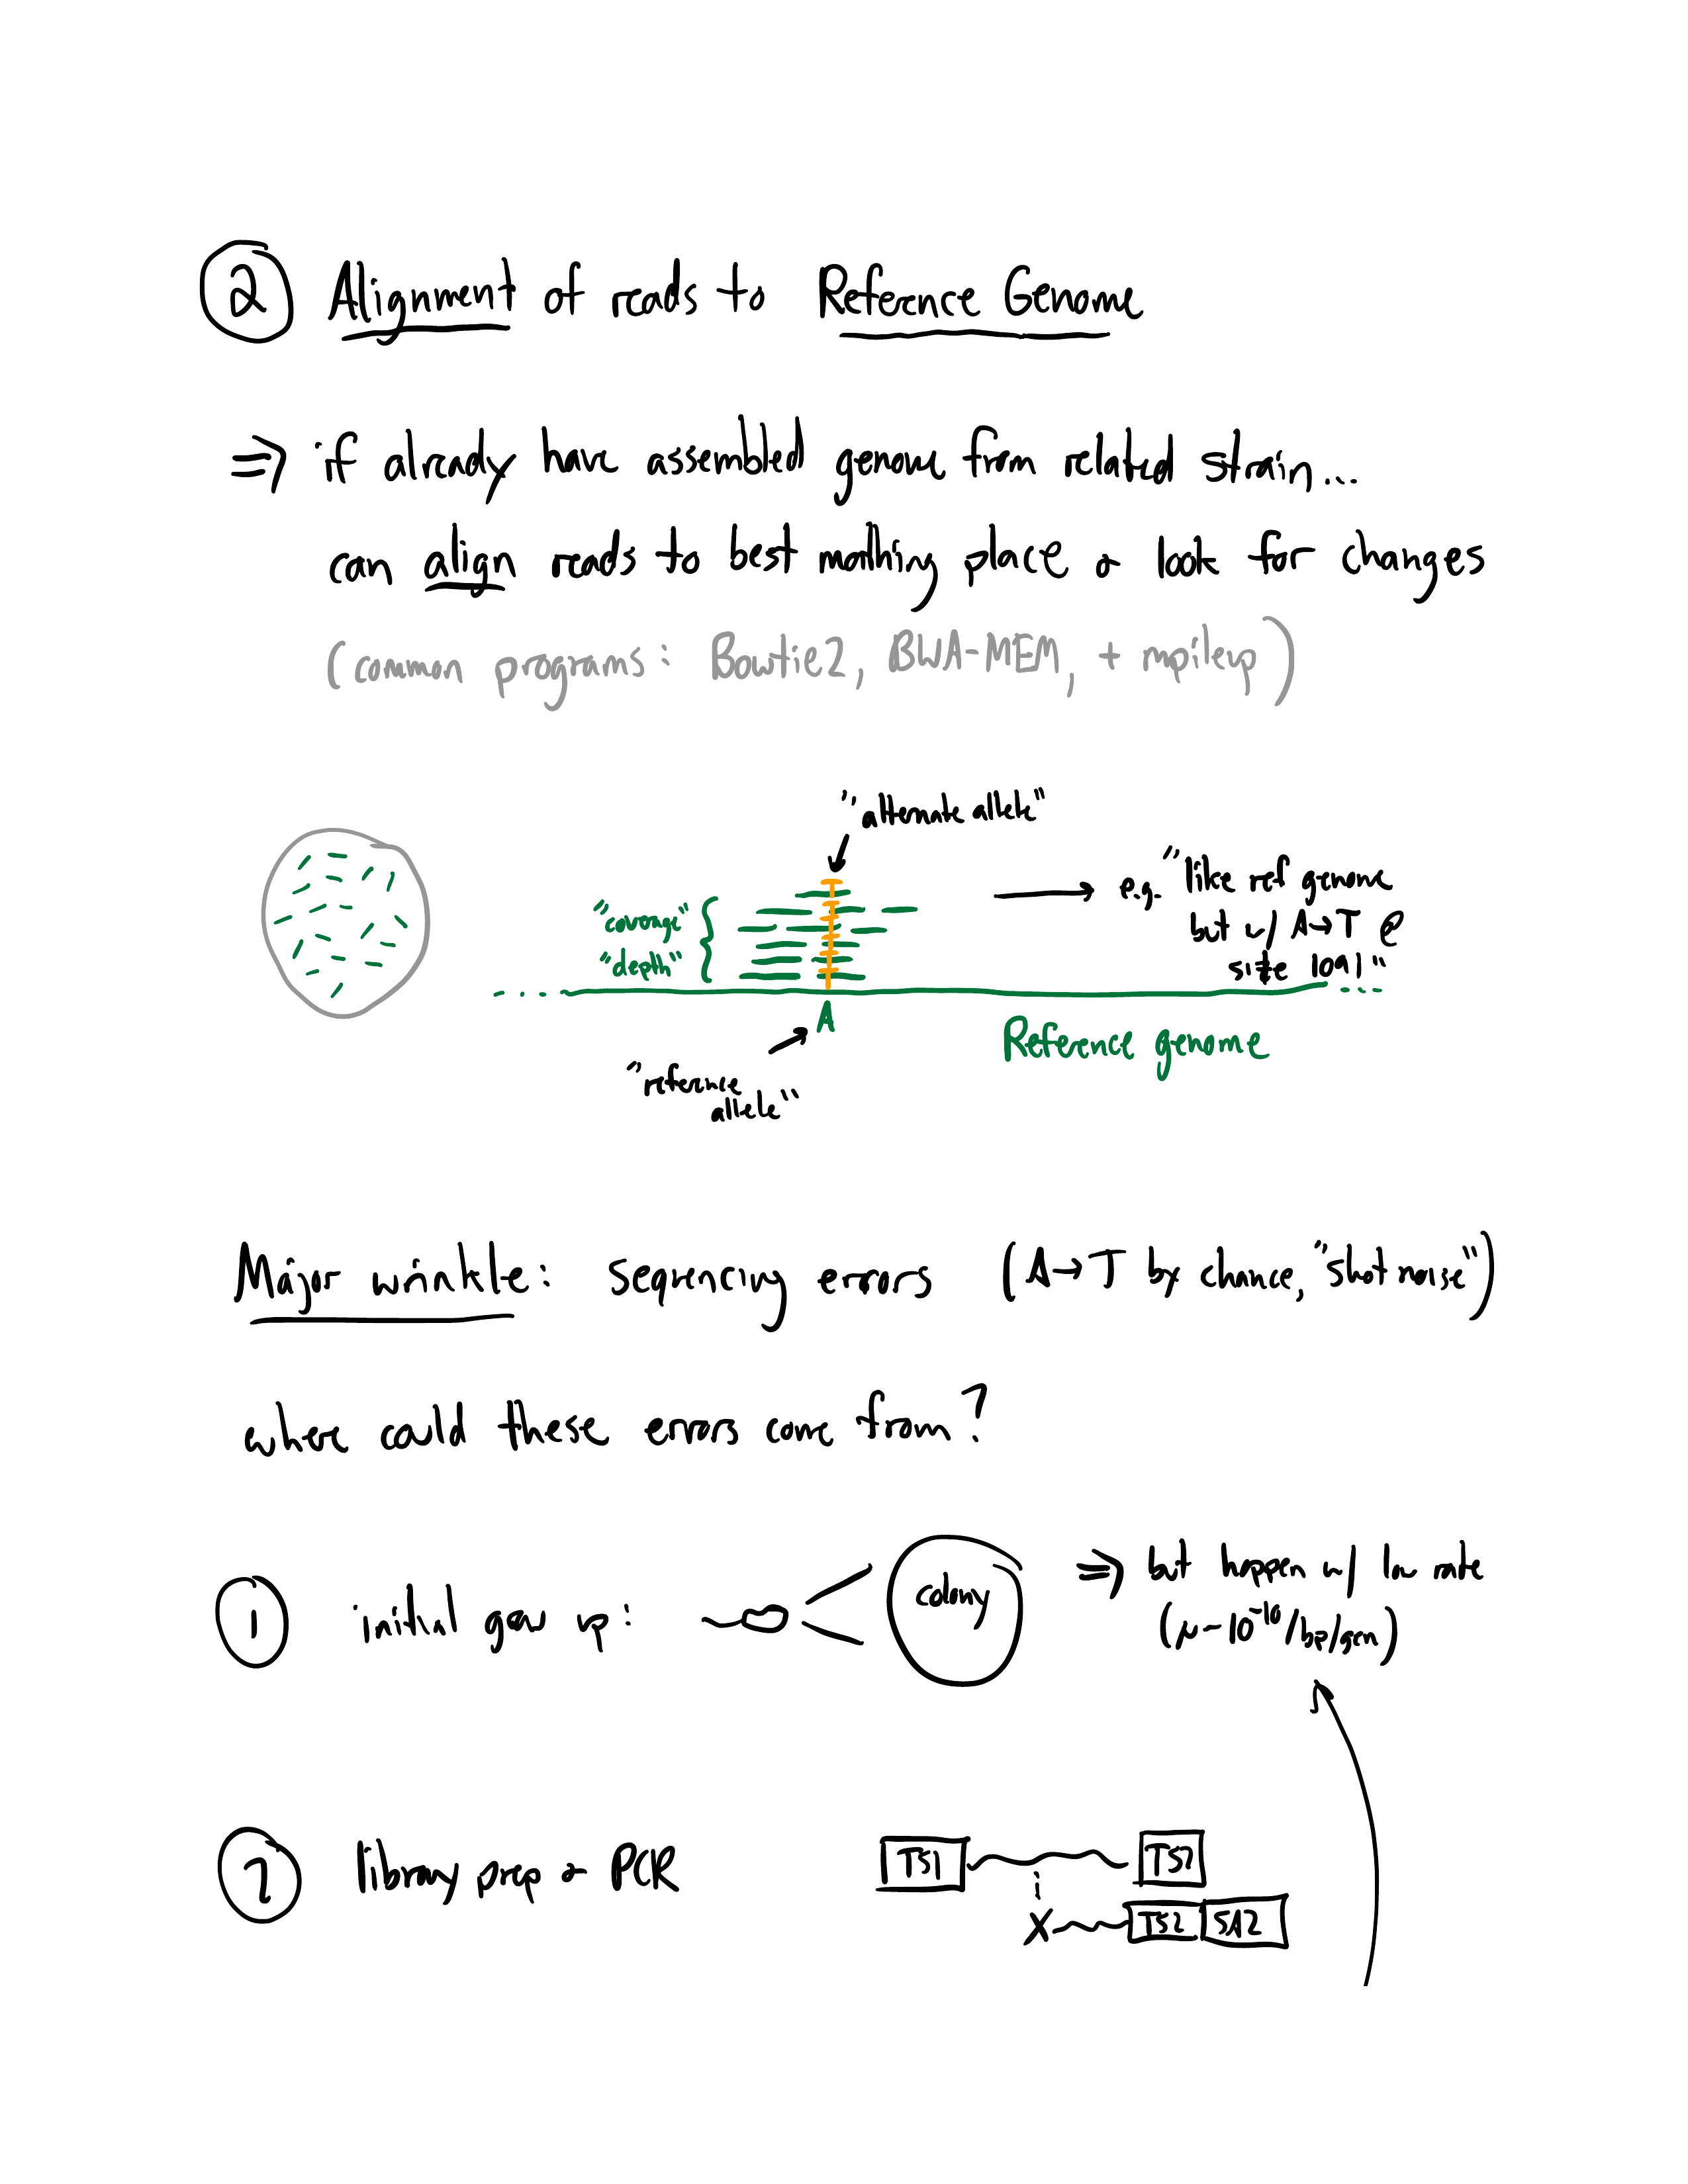 ② Alignment of reads to Reference Genome
⇒ if already have assembled genome from related strain...
can align reads to best matching place & look for changes
(common programs: Bowtie2, BWA-MEM, + mpileup)
"alternate allele"
"coverage"
"depth"
T
A
"reference
allele"
→ e.g. "like ref genome
but w/ A→T @
site 1091"
Reference genome
Major wrinkle: sequencing errors (A→T by chance, "shot noise")
where could these errors come from?
① initial grow up:
colony
⇒ but happen w/ low rate
(μ~10⁻¹⁰/bp/gen)
② library prep & PCR
TS1
TS2
X
TS2 SA2